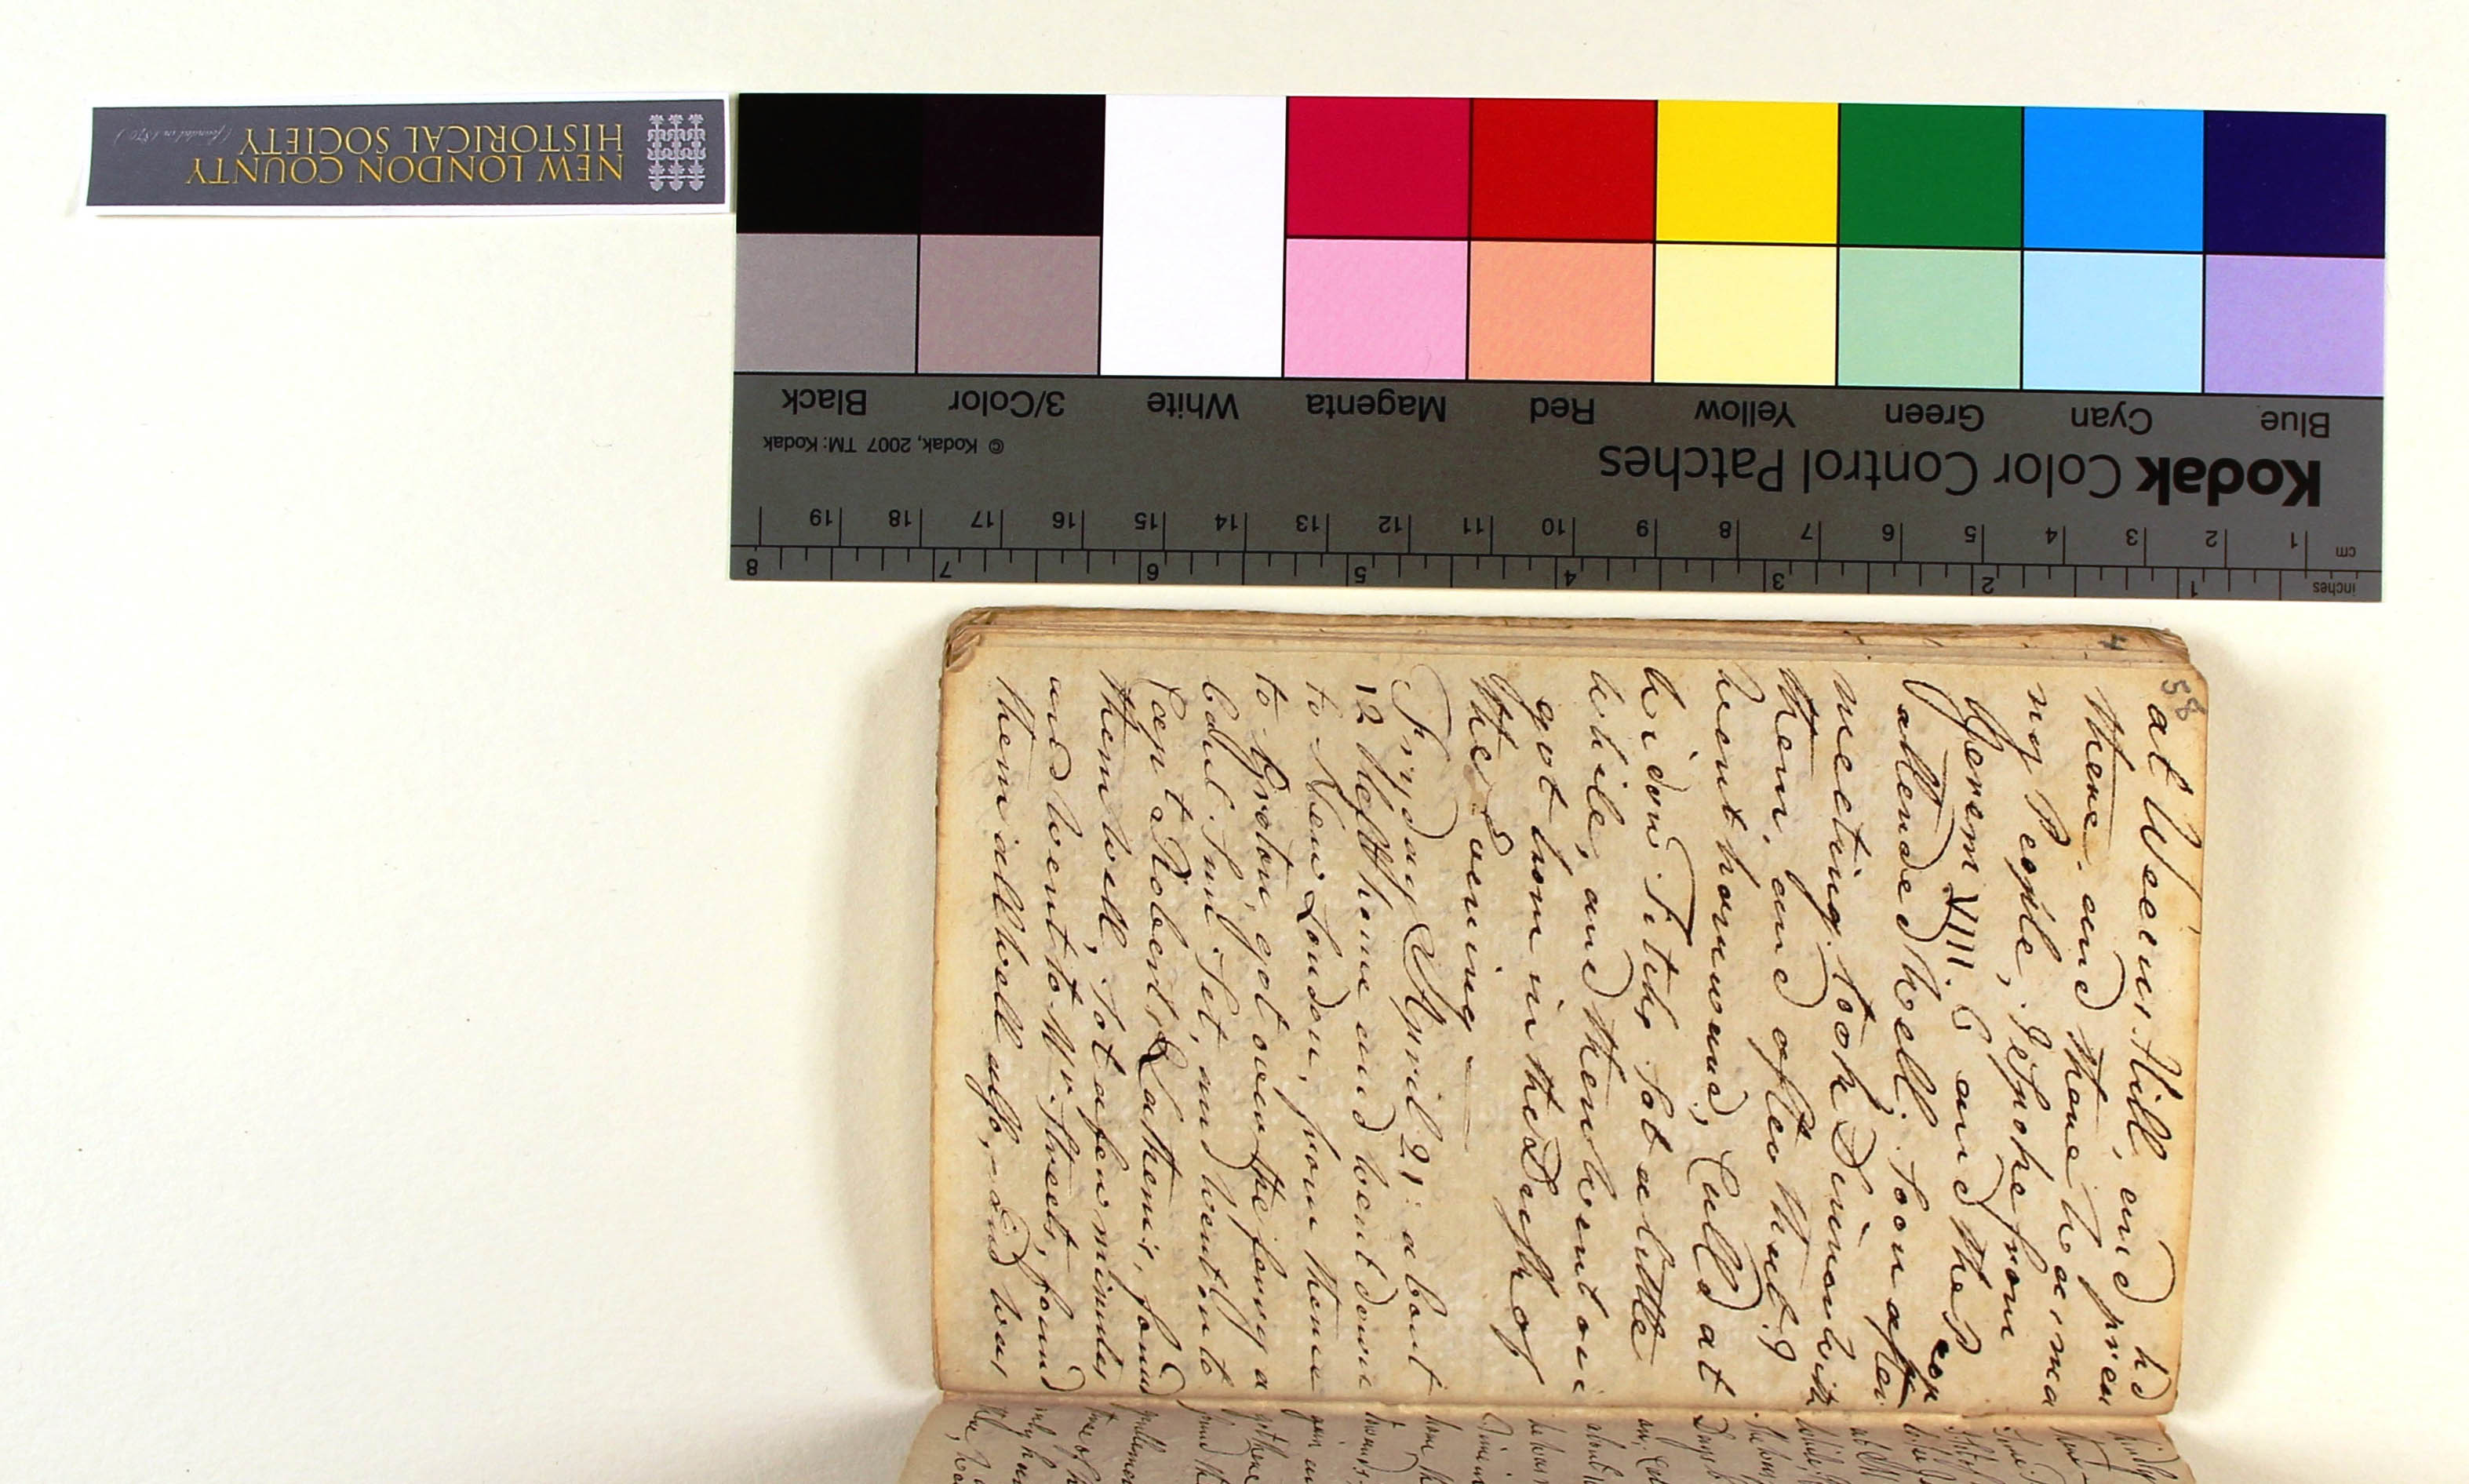 NEW LONDON COUNTY
HISTORICAL SOCIETY
(founded in 1870)
Black 3/Color White Magenta Red Yellow Green Cyan Blue
© Kodak, 2007 TM: Kodak
Kodak Color Control Patches
cm 1 2 3 4 5 6 7 8 9 10 11 12 13 14 15 16 17 18 19
inches 1 2 3 4 5 6 7 8
58
at Wecus Hill, and
there and there was ma
ny People, I Spoke from
Jerem VIII. 6 and the Peop
attended well. Soon after
meeting took Dinner with
them, and after that I
went homward, Calld at
widow Fitchs Sot a little
while, and then went on
got home in the Dusk of
the Evening —
Fryday April 21: about
12 left home and went down
to New London, from thence
to Groton, got over the ferry a
bout Sun Set, and went on to
Capt Robert Lathems, found
them well, Sot a few minutes
and went to Mr. Streets, found
them all well also, and was